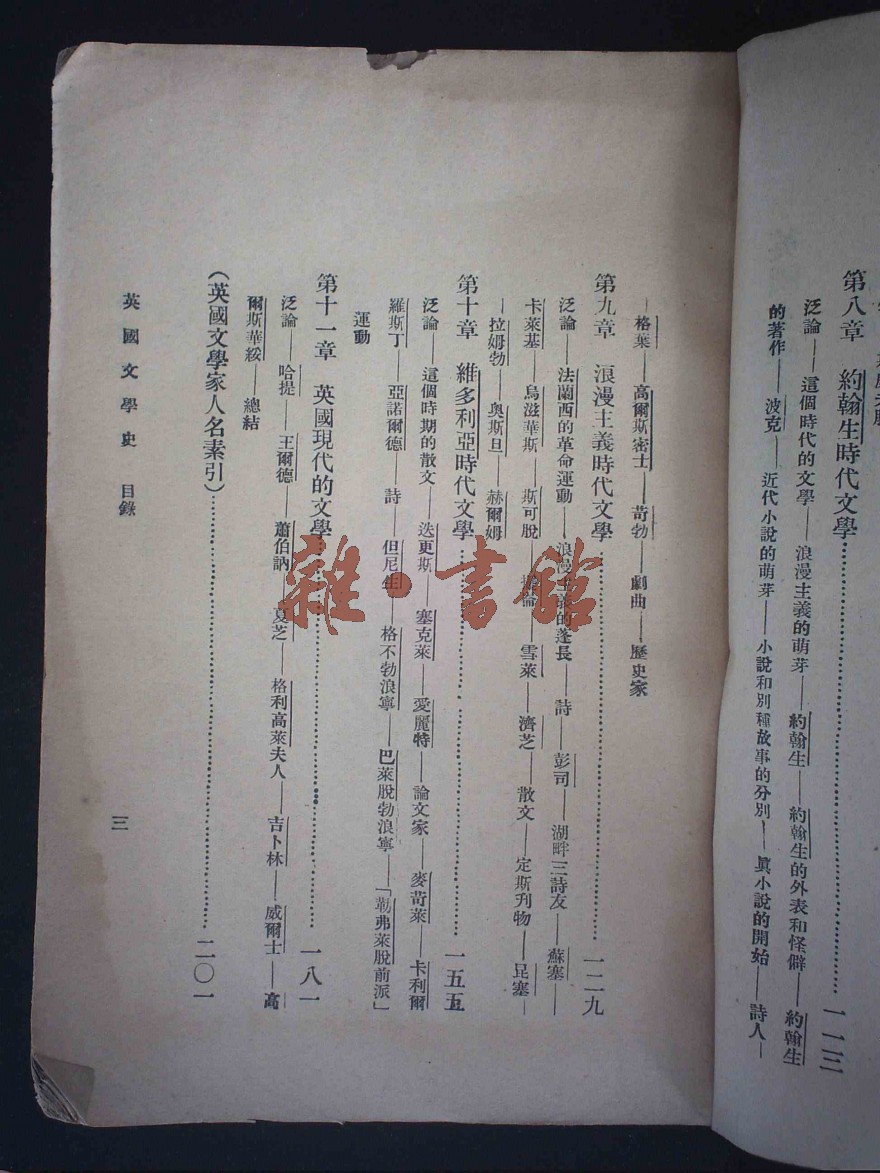 第八章　約翰生時代文學…………一一三
泛論——這個時代的文學——浪漫主義的萌芽——約翰生——約翰生的外表和怪僻——約翰生
的著作——波克——近代小說的萌芽——小說和別種故事的分別——眞小說的開始——詩人—
—格葉——高爾斯密士——苛勃——劇曲——歷史家
第九章　浪漫主義時代文學…………一二九
泛論——法蘭西的革命運動——浪漫主義的蓬長——詩——彭司——湖畔三詩友——蘇塞——
卡萊基——烏滋華斯——斯可脫——論——雪萊——濟芝——散文——定斯刋物——昆塞—
—拉姆勃——奥斯旦——赫爾姆
第十章　維多利亞時代文學…………一五五
泛論——這個時期的散文——迭更斯——塞克萊——愛麗特——論文家——麥苛萊——卡利爾
羅斯丁——亞諾爾德——詩——但尼生——格不勃浪寧——巴萊脫勃浪寧——「勒弗萊脫前派」
運動
第十一章　英國現代的文學…………一八一
泛論——哈提——王爾德——蕭伯訥——夏芝——格利高萊夫人——吉卜林——威爾士——高
爾斯華綏——總結
（英國文學家人名素引）…………二〇一
英國文學史　目錄
三
雜·書館